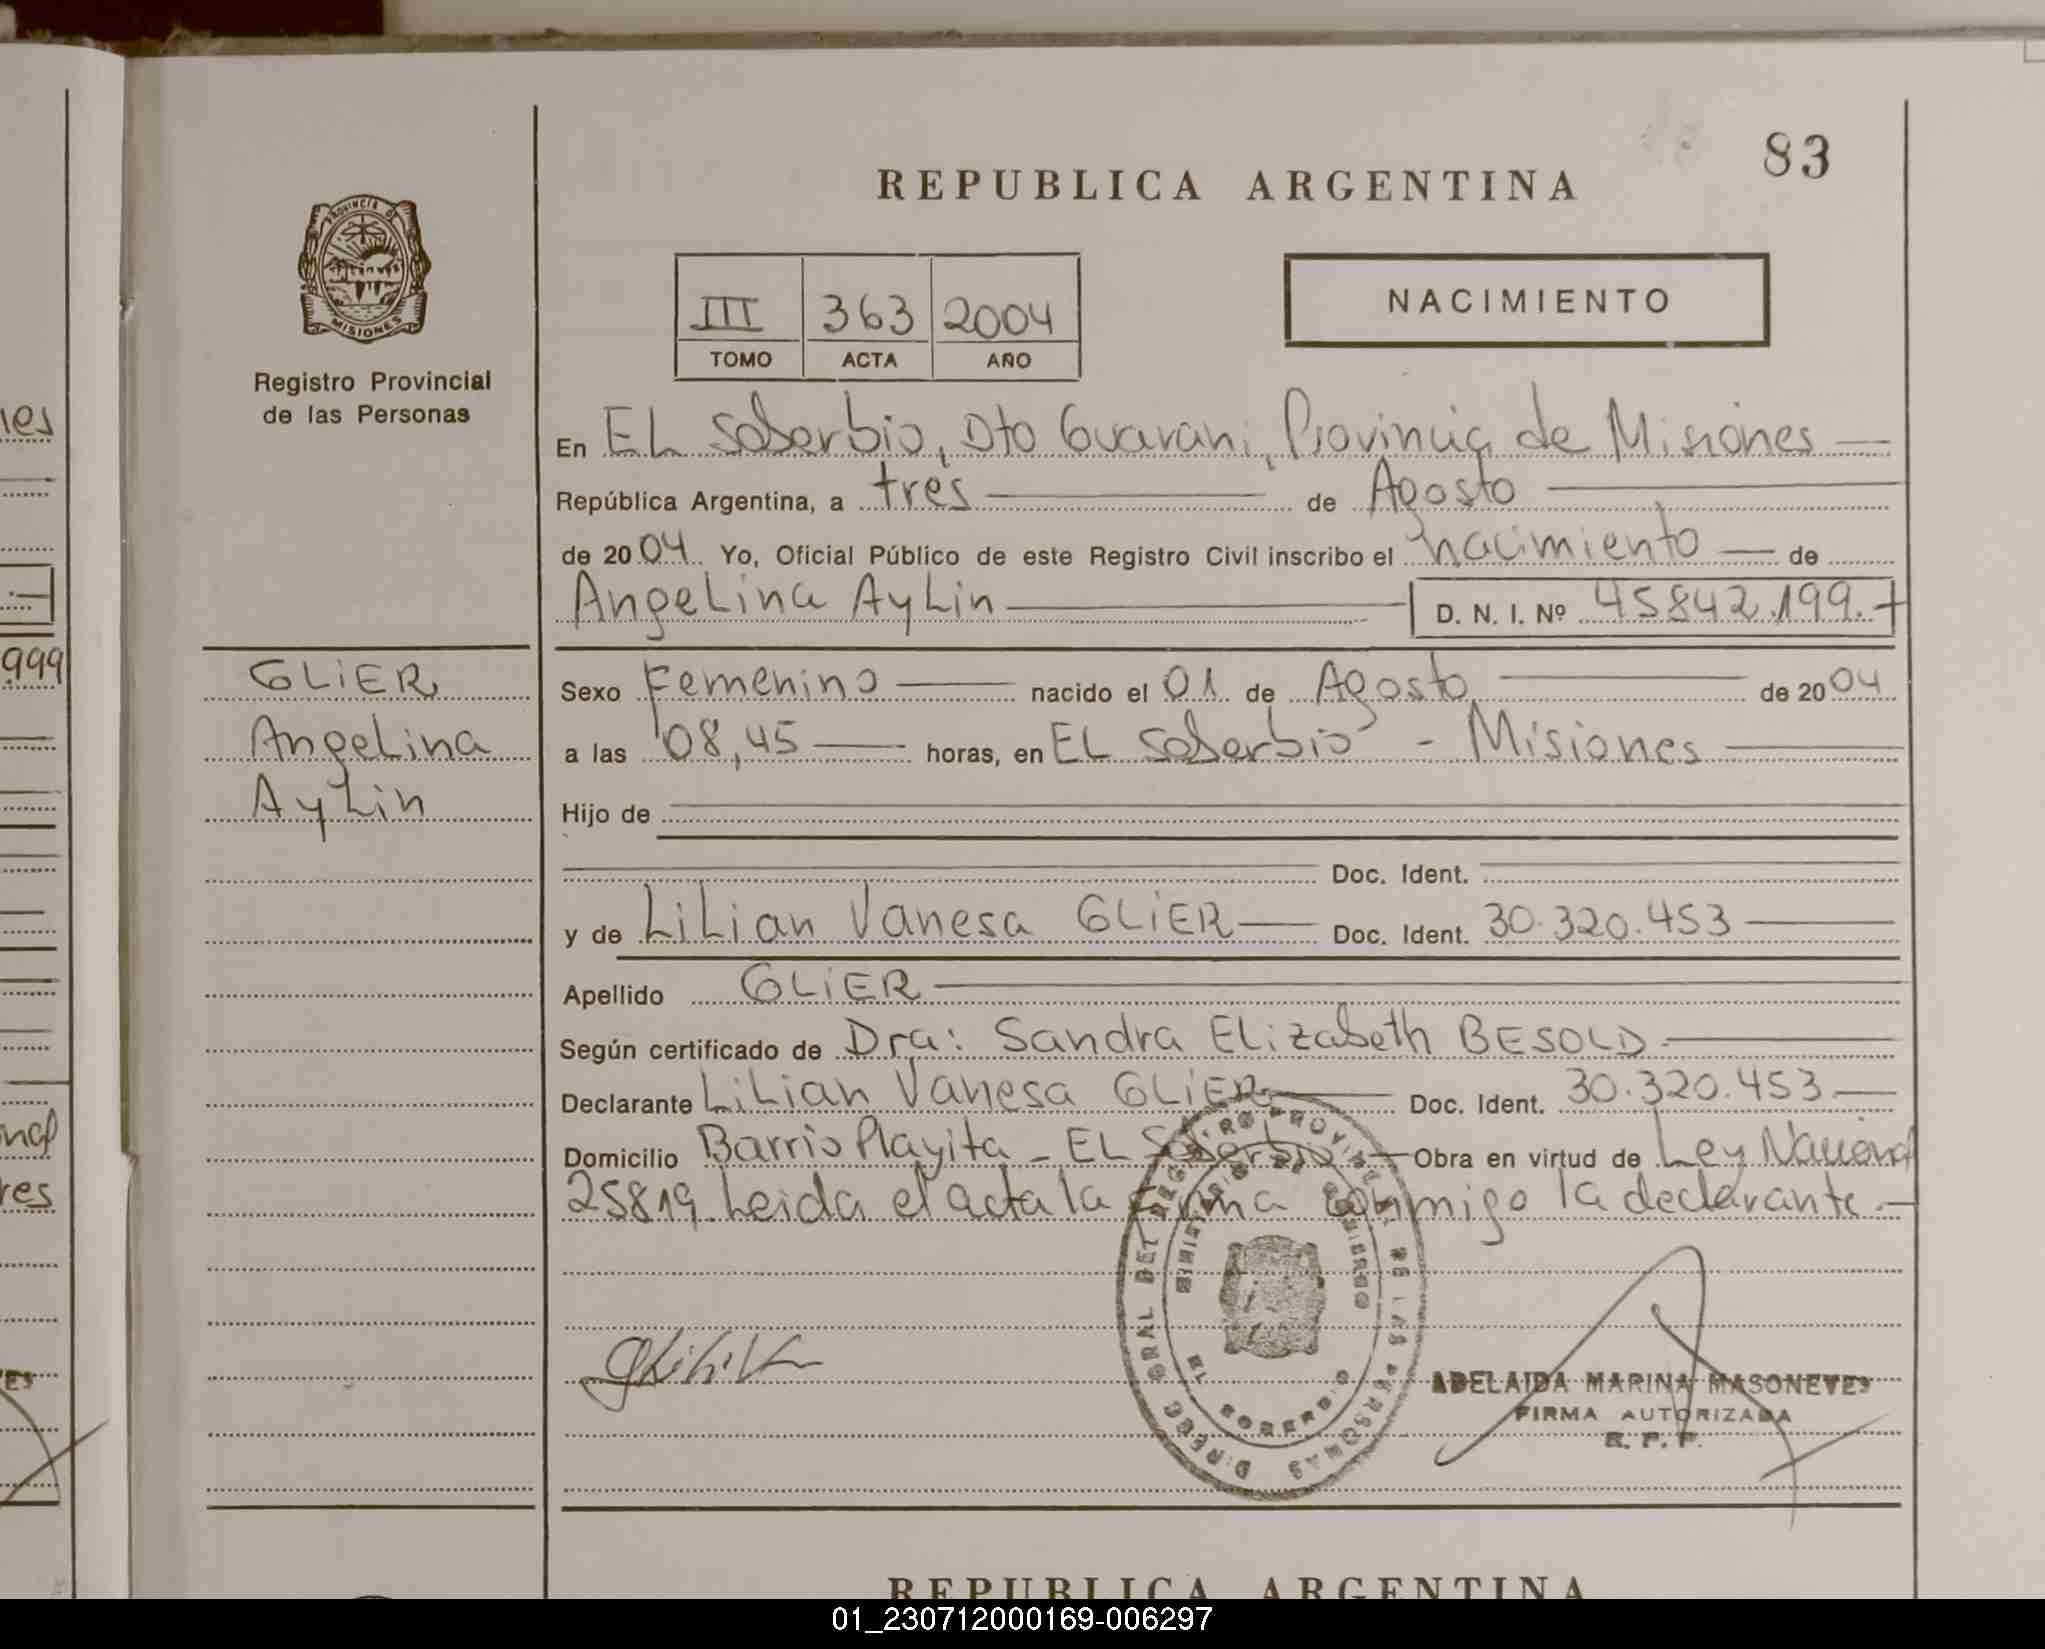 83
REPUBLICA ARGENTINA
PROVINCIA DE
MISIONES
Registro Provincial
de las Personas
III 363 2004
TOMO ACTA AÑO
NACIMIENTO
En EL Soberbio, Dto Guarani, Provincia de Misiones
República Argentina, a tres de Agosto
de 2004 Yo, Oficial Público de este Registro Civil inscribo el nacimiento de
Angelina Aylin D. N. I. Nº 45842.199.
GLIER
Angelina
Aylin
Sexo Femenino nacido el 01 de Agosto de 2004
a las 08,45 horas, en EL Soberbio - Misiones
Hijo de
Doc. Ident.
y de Lilian Vanesa GLIER Doc. Ident. 30.320.453
Apellido GLIER
Según certificado de Dra: Sandra Elizabeth BESOLD
Declarante Lilian Vanesa GLIER Doc. Ident. 30.320.453
Domicilio Barrio Playita - EL Soberbio Obra en virtud de Ley Nacional
25819. Leida el acta la firma conmigo la declarante.
DIRECC GRAL DEL REGISTRO PROVINC. DE LAS PERSONAS
MINISTERIO DE GOBIERNO
EL SOBERBIO
ADELAIDA MARINA MASONEVES
FIRMA AUTORIZADA
R. P. P.
REPUBLICA ARGENTINA
999
res
01_230712000169-006297